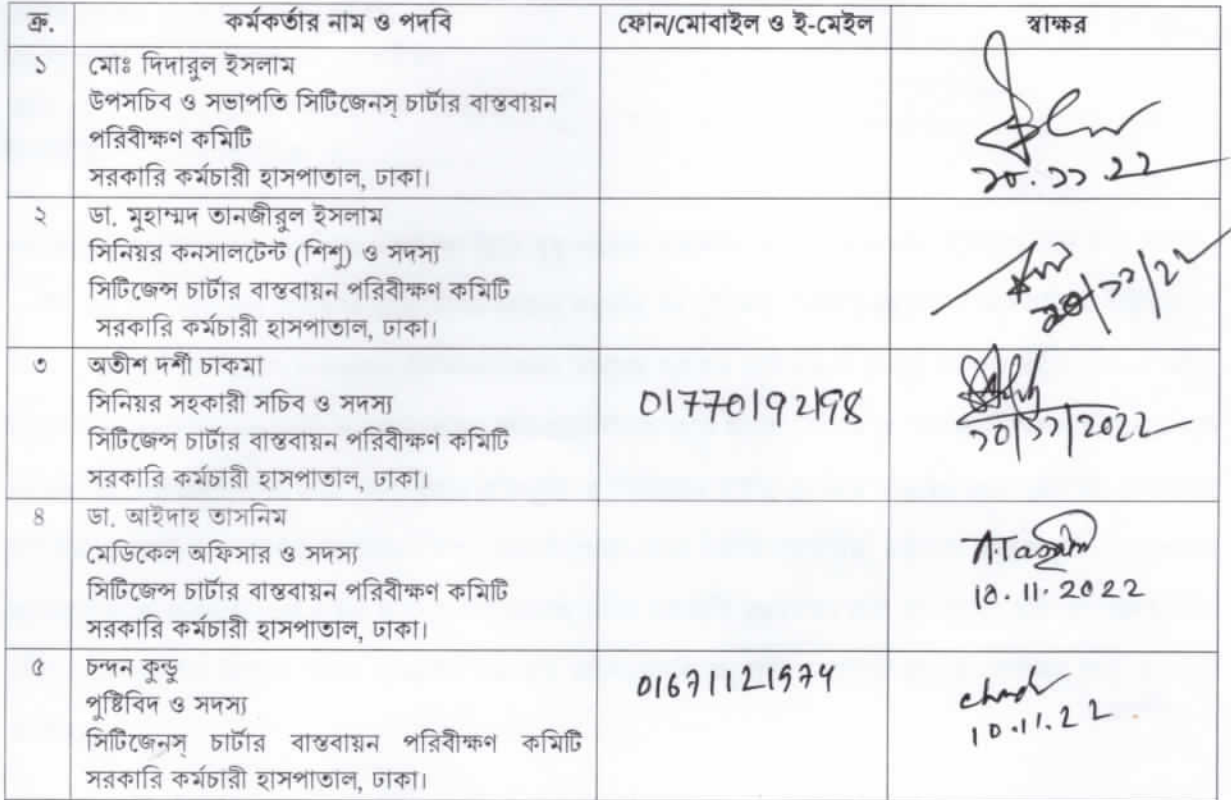 ক্র. কর্মকর্তার নাম ও পদবি ফোন/মোবাইল ও ই-মেইল স্বাক্ষর
১ মোঃ দিদারুল ইসলাম
উপসচিব ও সভাপতি সিটিজেনস্ চার্টার বাস্তবায়ন
পরিবীক্ষণ কমিটি
সরকারি কর্মচারী হাসপাতাল, ঢাকা।
১০.১১.22
২ ডা. মুহাম্মদ তানজীরুল ইসলাম
সিনিয়র কনসালটেন্ট (শিশু) ও সদস্য
সিটিজেন্স চার্টার বাস্তবায়ন পরিবীক্ষণ কমিটি
সরকারি কর্মচারী হাসপাতাল, ঢাকা।
৩ অতীশ দর্শী চাকমা
সিনিয়র সহকারী সচিব ও সদস্য
সিটিজেন্স চার্টার বাস্তবায়ন পরিবীক্ষণ কমিটি
সরকারি কর্মচারী হাসপাতাল, ঢাকা।
01770192198
১০/১১/2022
৪ ডা. আইদাহ তাসনিম
মেডিকেল অফিসার ও সদস্য
সিটিজেন্স চার্টার বাস্তবায়ন পরিবীক্ষণ কমিটি
সরকারি কর্মচারী হাসপাতাল, ঢাকা।
A.Tasnim
10.11.2022
৫ চন্দন কুন্ডু
পুষ্টিবিদ ও সদস্য
সিটিজেনস্ চার্টার বাস্তবায়ন পরিবীক্ষণ কমিটি
সরকারি কর্মচারী হাসপাতাল, ঢাকা।
01671121574
10.11.22